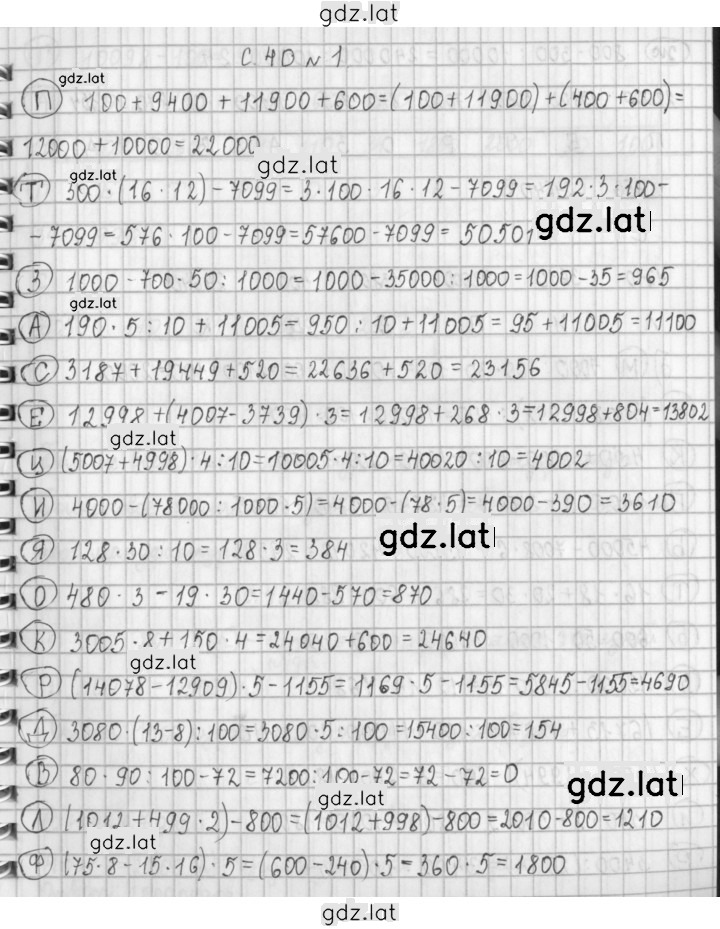 gdz.lat
С. 40 № 1
gdz.lat
П 100 + 9400 + 11900 + 600 = (100 + 11900) + (400 + 600) =
12000 + 10000 = 22000
gdz.lat
gdz.lat
Т 500 · (16 · 12) - 7099 = 3 · 100 · 16 · 12 - 7099 = 192 · 3 · 100 -
- 7099 = 576 · 100 - 7099 = 57600 - 7099 = 50501
gdz.lat
З 1000 - 700 · 50 : 1000 = 1000 - 35000 : 1000 = 1000 - 35 = 965
gdz.lat
А 190 · 5 : 10 + 11005 = 950 : 10 + 11005 = 95 + 11005 = 11100
С 3187 + 19449 + 520 = 22636 + 520 = 23156
Е 12998 + (4007 - 3739) · 3 = 12998 + 268 · 3 = 12998 + 804 = 13802
gdz.lat
Ц (5007 + 4998) · 4 : 10 = 10005 · 4 : 10 = 40020 : 10 = 4002
И 4000 - (78000 : 1000 · 5) = 4000 - (78 · 5) = 4000 - 390 = 3610
gdz.lat
Я 128 · 30 : 10 = 128 · 3 = 384
О 480 · 3 - 19 · 30 = 1440 - 570 = 870
К 3005 · 8 + 150 · 4 = 24040 + 600 = 24640
gdz.lat
Р (14078 - 12909) · 5 - 1155 = 1169 · 5 - 1155 = 5845 - 1155 = 4690
Д 3080 · (13 - 8) : 100 = 3080 · 5 : 100 = 15400 : 100 = 154
В 80 · 90 : 100 - 72 = 7200 : 100 - 72 = 72 - 72 = 0
gdz.lat
gdz.lat
Л (1012 + 499 · 2) - 800 = (1012 + 998) - 800 = 2010 - 800 = 1210
gdz.lat
Ф (75 · 8 - 15 · 16) · 5 = (600 - 240) · 5 = 360 · 5 = 1800
gdz.lat